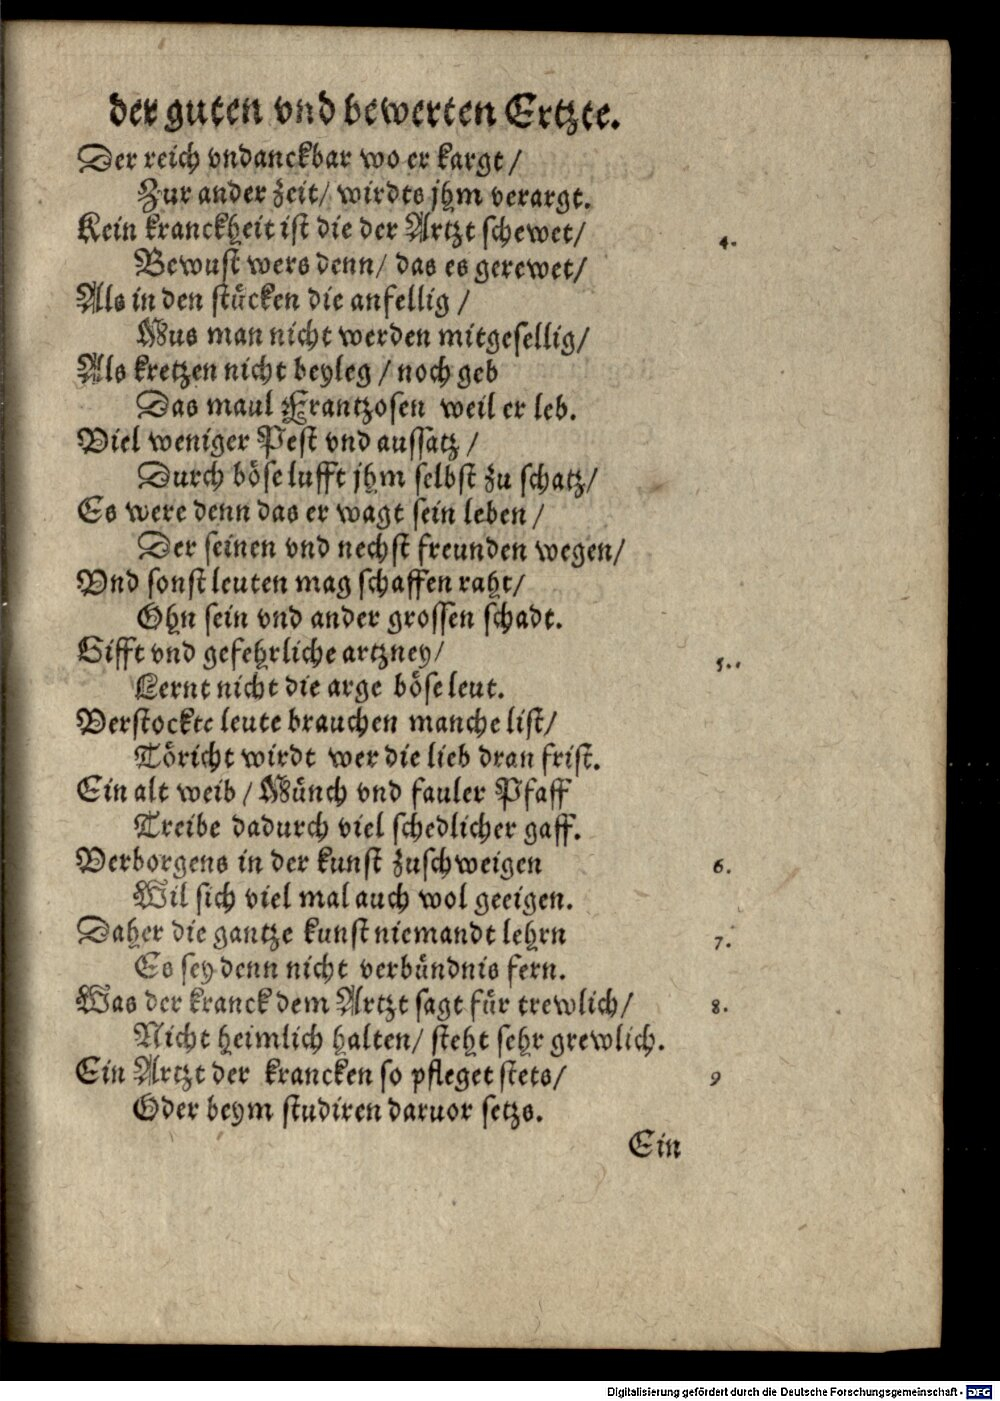 der guten vnd bewerten Ertzte.
Der reich vndanckbar wo er kargt /
Zur ander zeit / wirdts jhm verargt.
Kein kranckheit ist die der Artzt schewet / 4.
Bewust wers denn / das es gerewet /
Als in den stücken die anfellig /
Mus man nicht werden mitgesellig /
Als kretzen nicht beyleg / noch geb
Das maul Frantzosen weil er leb.
Viel weniger Pest vnd aussatz /
Durch böse lufft jhm selbst zu schatz /
Es were denn das er wagt sein leben /
Der seinen vnd nechst freunden wegen /
Vnd sonst leuten mag schaffen raht /
Ohn sein vnd ander grossen schadt.
Gifft vnd gefehrliche artzney / 5.
Lernt nicht die arge böse leut.
Verstockte leute brauchen manche list /
Töricht wirdt wer die lieb dran frist.
Ein alt weib / Münch vnd fauler Pfaff
Treibe dadurch viel schedlicher gaff.
Verborgens in der kunst zuschweigen 6.
Wil sich viel mal auch wol geeigen.
Daher die gantze kunst niemandt lehrn 7.
Es sey denn nicht verbündnis fern.
Was der kranck dem Artzt sagt für trewlich / 8.
Nicht heimlich halten / steht sehr grewlich.
Ein Artzt der krancken so pfleget stets / 9
Oder beym studiren daruor setzs.
Ein
Digitalisierung gefördert durch die Deutsche Forschungsgemeinschaft - DFG